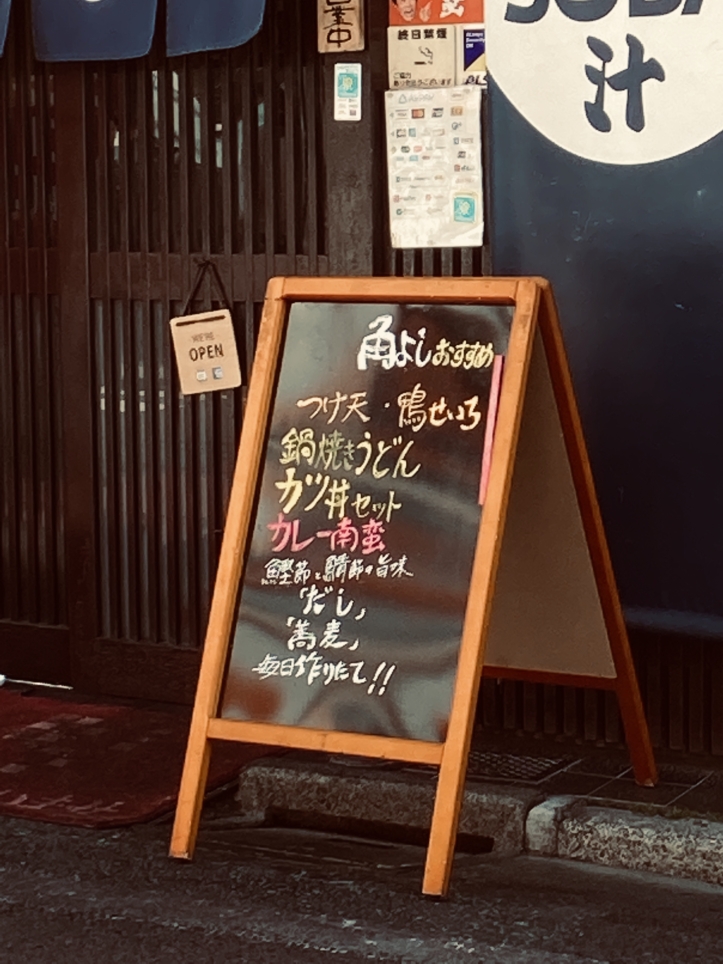 営業中
終日禁煙
ご協力
ありがとうございます
SOBA
汁
WE'RE
OPEN
角よしおすすめ
つけ天・鴨せいろ
鍋焼きうどん
カツ丼セット
カレー南蛮
鰹節と鯖節の旨味
「だし」
「蕎麦」
毎日作りたて!!